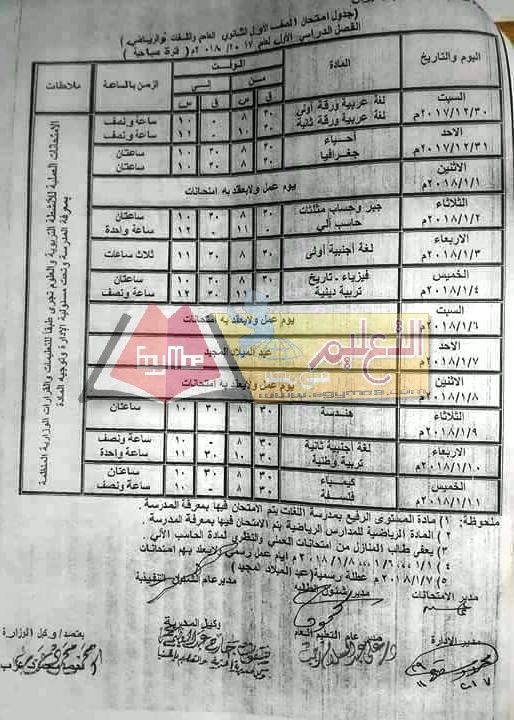 (جدول امتحان الصف الأول الثانوي العام واللغات والرياضي)
الفصل الدراسي الأول لعام ٢٠١٧/٢٠١٨م (فترة صباحية)
اليوم والتاريخ المادة الوقت الزمن بالساعة ملاحظات
من إلى
ق س ق س
السبت ٢٠١٧/١٢/٣٠م
لغة عربية ورقة أولى ٣٠ ٨ ٠ ١٠ ساعة ونصف
لغة عربية ورقة ثانية ٣٠ ١٠ ٠ ١٢ ساعة ونصف
الاحد ٢٠١٧/١٢/٣١م
أحياء ٣٠ ٨ ٣٠ ١٠ ساعتان
جغرافيا ٣٠ ٨ ٣٠ ١٠ ساعتان
الاثنين ٢٠١٨/١/١م
يوم عمل ولايعقد به امتحانات
الثلاثاء ٢٠١٨/١/٢م
جبر وحساب مثلثات ٣٠ ٨ ٣٠ ١٠ ساعتان
حاسب آلي ٠ ١١ ٠ ١٢ ساعة واحدة
الاربعاء ٢٠١٨/١/٣م
لغة أجنبية أولى ٣٠ ٨ ٣٠ ١١ ثلاث ساعات
الخميس ٢٠١٨/١/٤م
فيزياء - تاريخ ٣٠ ٨ ٣٠ ١٠ ساعتان
تربية دينية ٣٠ ١٢ ساعة ونصف
السبت ٢٠١٨/١/٦م
يوم عمل ولايعقد به امتحانات
الاحد ٢٠١٨/١/٧م
عيد الميلاد المجيد
الاثنين ٢٠١٨/١/٨م
يوم عمل ولايعقد به امتحانات
الثلاثاء ٢٠١٨/١/٩م
هندسة ٣٠ ٨ ٣٠ ١٠ ساعتان
الاربعاء ٢٠١٨/١/١٠م
لغة أجنبية ثانية ٣٠ ٨ ٠ ١٠ ساعة ونصف
تربية وطنية ٣٠ ١٠ ٣٠ ١١ ساعة واحدة
الخميس ٢٠١٨/١/١١م
كيمياء ٣٠ ٨ ٣٠ ١٠ ساعتان
فلسفة ٣٠ ٨ ٠ ١٠ ساعة ونصف
الامتحانات العملية للأنشطة التربوية والعلوم تجرى طبقا للتعليمات والقرارات الوزارية المنظمة
بمعرفة المدرسة وتحت مسئولية الإدارة وتوجيه المادة
Egyme
التعليم
www.egyme.com
ملحوظة: ١) مادة المستوى الرفيع بمدرسة اللغات يتم الامتحان فيها بمعرفة المدرسة.
٢) المادة الرياضية للمدارس الرياضية يتم الامتحان فيها بمعرفة المدرسة.
٣) يعفى طالب المنازل من امتحانات العملي والنظري لمادة الحاسب الآلي.
٤) ١/١، ١/٦، ٢٠١٨/١/٨م ايام عمل رسمي ولايعقد بهم امتحانات
٥) ٢٠١٨/١/٧م عطلة رسمية (عيد الميلاد المجيد)
مدير الامتحانات
مدير شئون الطلبة
مدير عام الشئون التنفيذية
مدير الإدارة
مدير عام التعليم العام
وكيل المديرية
يعتمد/ وكيل الوزارة